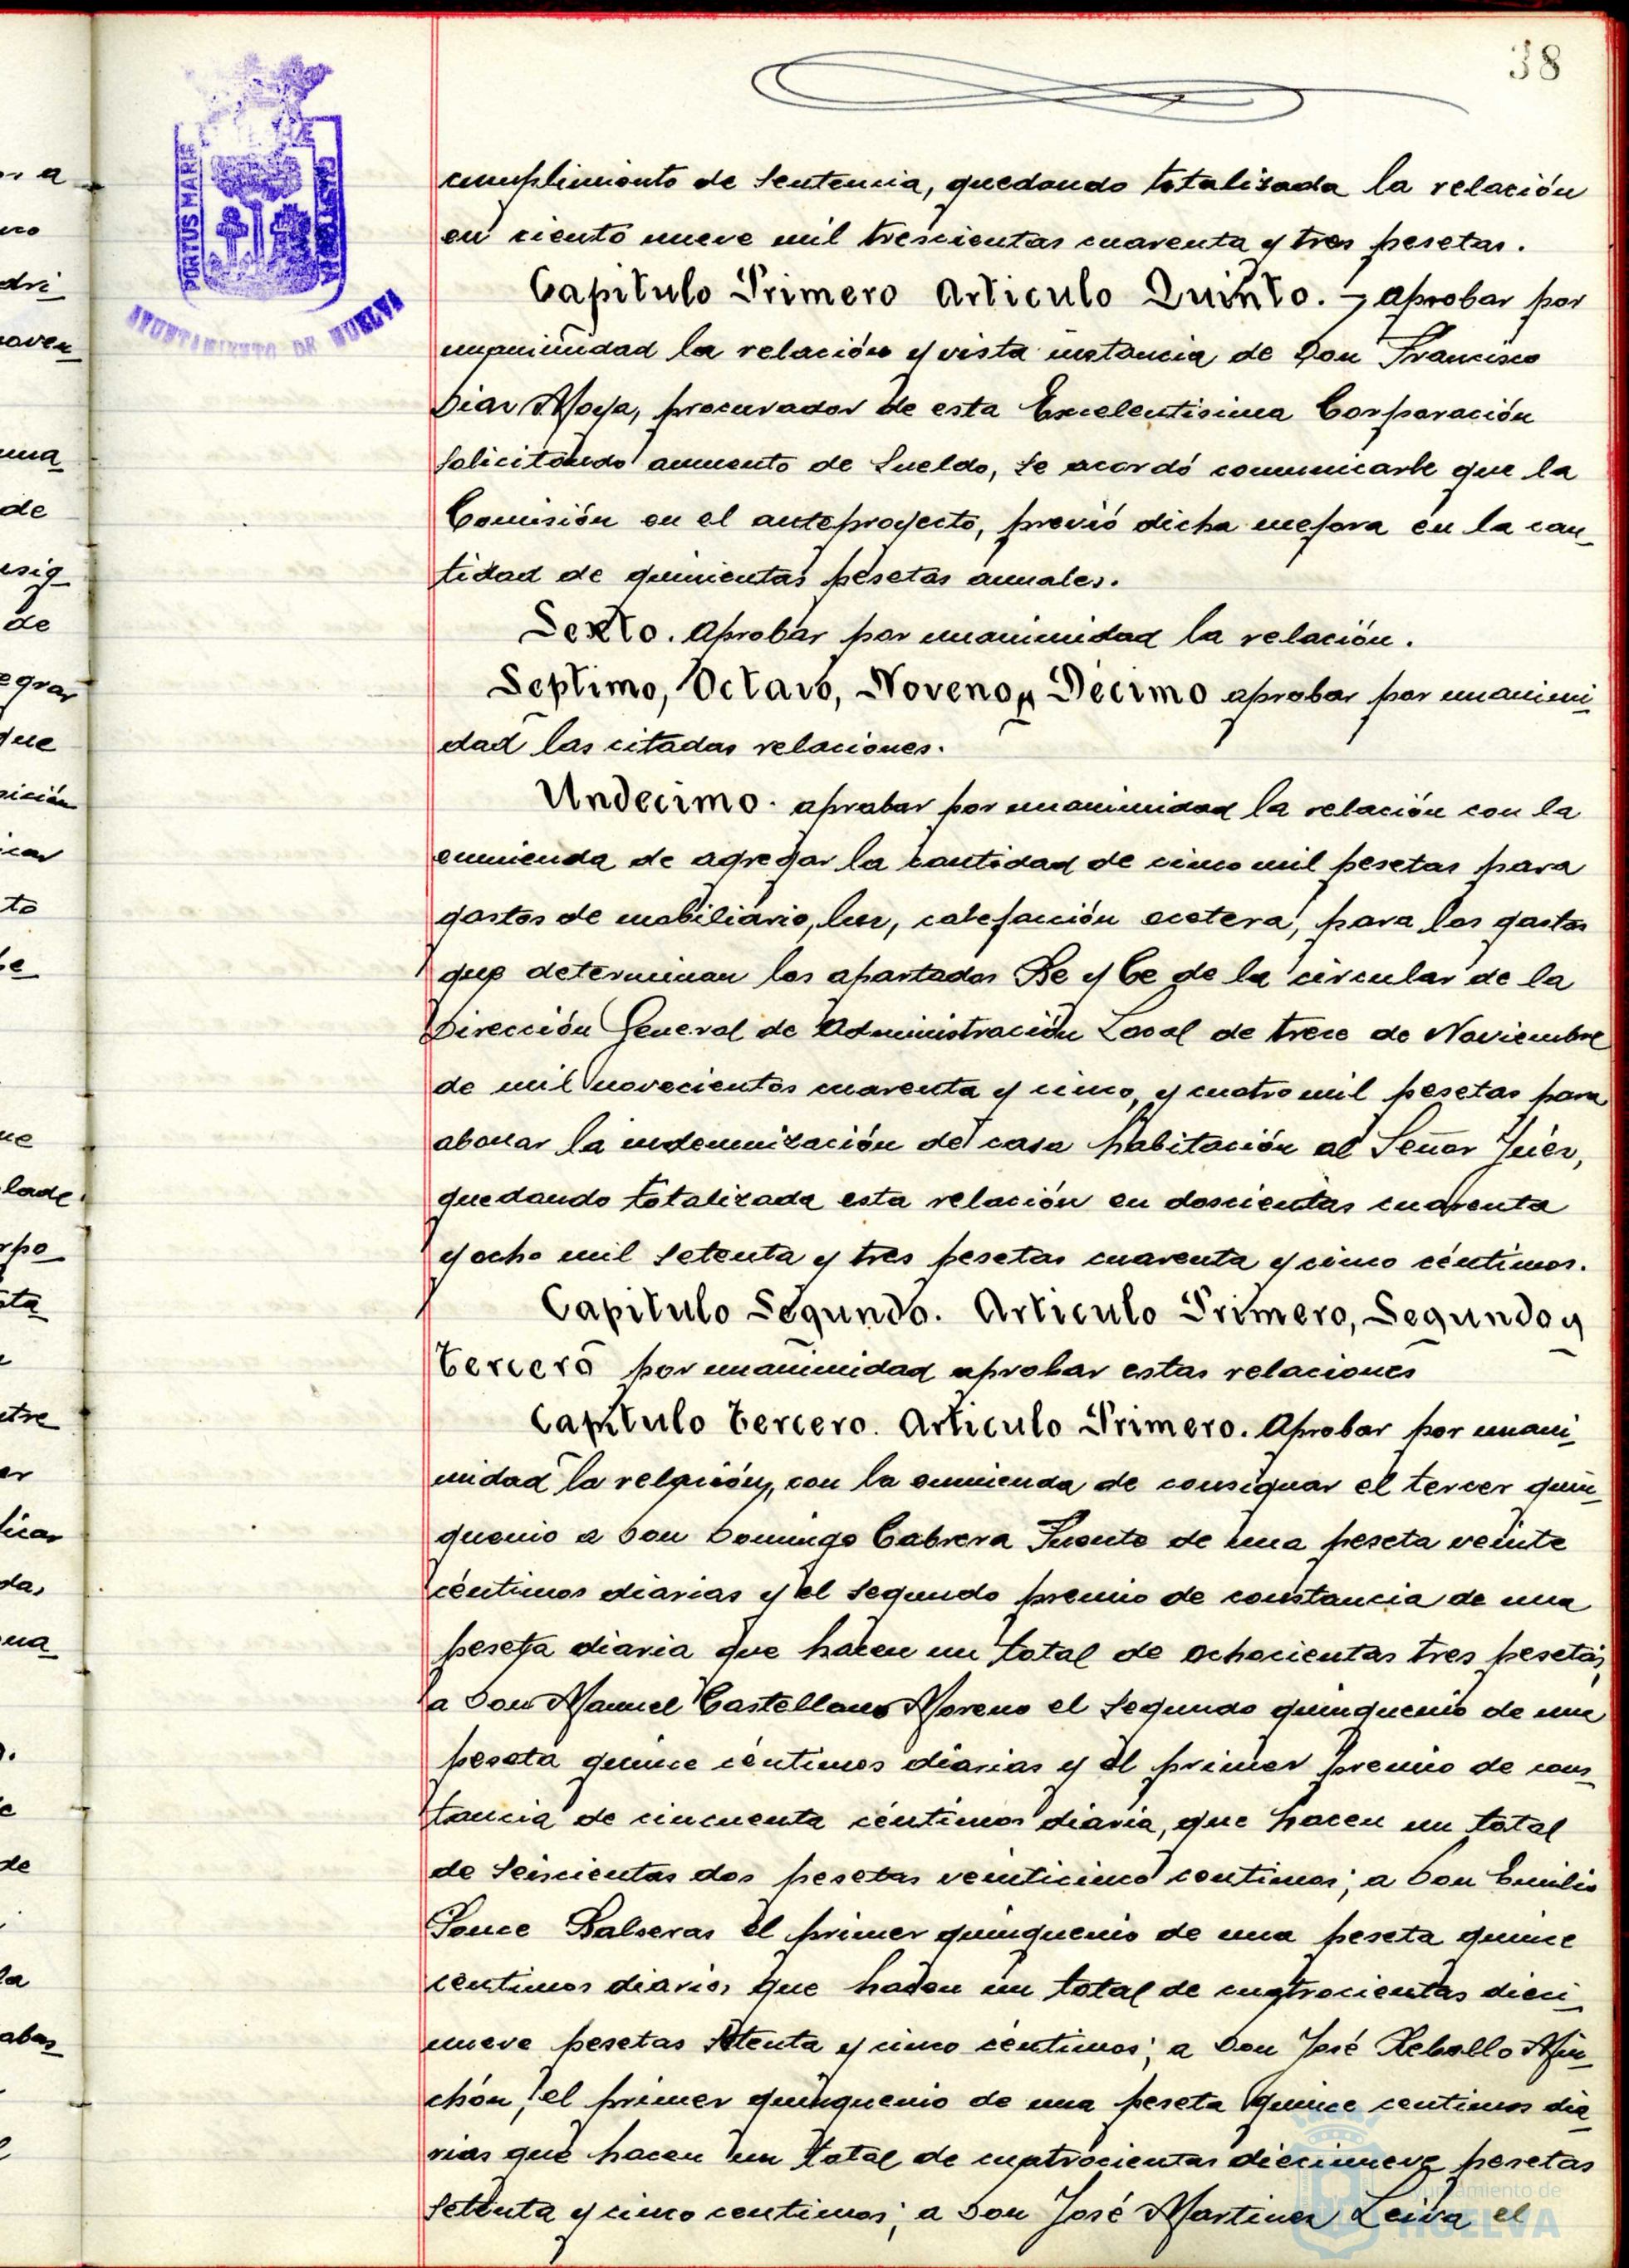 38
PORTUS MARIS
AYUNTAMIENTO DE HUELVA
cumplimiento de sentencia, quedando totalizada la relación
en ciento nueve mil trescientas cuarenta y tres pesetas.
Capitulo Primero Articulo Quinto. - aprobar por
unanimidad la relación y vista instancia de Don Francisco
Diaz Moya, procurador de esta Excelentisima Corporación
solicitando aumento de sueldo, se acordó comunicarle que la
Comisión en el anteproyecto, previó dicha mejora en la can_
tidad de quinientas pesetas anuales.
Sexto. aprobar por unanimidad la relación.
Septimo, Octavo, Noveno y Décimo aprobar por unanimi_
dad las citadas relaciones.
Undecimo. aprobar por unanimidad la relación con la
enmienda de agregar la cantidad de cinco mil pesetas para
gastos de mobiliario, luz, calefacción ecetera, para los gastos
que determinan los apartados Be y Ce de la circular de la
Dirección General de Administración Local de trece de Noviembre
de mil novecientos cuarenta y cinco, y cuatro mil pesetas para
abonar la indemnización de casa habitación al Señor Juez,
quedando totalizada esta relación en doscientas cuarenta
y ocho mil setenta y tres pesetas cuarenta y cinco céntimos.
Capitulo Segundo. Articulo Primero, Segundo y
tercero por unanimidad aprobar estas relaciones
Capitulo tercero. Articulo Primero. Aprobar por unani_
midad la relación, con la enmienda de consignar el tercer quin_
quenio a Don Domingo Cabrera Puente de una peseta veinte
céntimos diarias y el segundo premio de constancia de una
peseta diaria que hacen un total de ochocientas tres pesetas;
a Don Manuel Castellano Moreno el segundo quinquenio de una
peseta quince céntimos diarias y el primer premio de cons_
tancia de cincuenta céntimos diaria, que hacen un total
de seiscientas dos pesetas veinticinco centimos; a Don Emilio
Ponce Balseras el primer quinquenio de una peseta quince
céntimos diarios que hacen un total de cuatrocientas dieci_
nueve pesetas setenta y cinco céntimos; a Don José Rebollo Min_
chón, el primer quinquenio de una peseta quince centimos dia_
rias que hacen un total de cuatrocientas diecinueve pesetas
setenta y cinco centimos; a Don José Martinez Leiva el
Ayuntamiento de
HUELVA